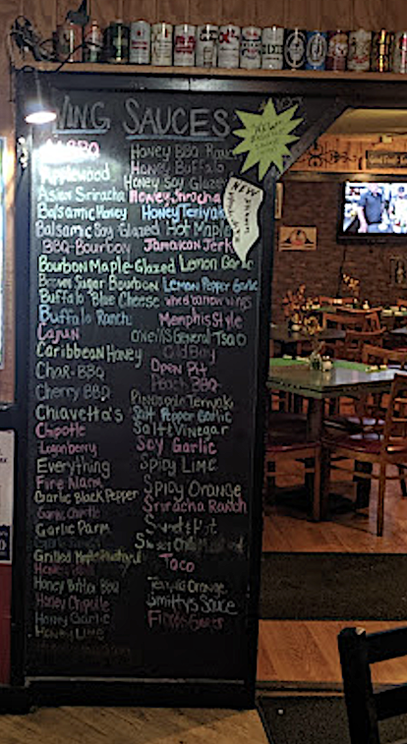 WING SAUCES
BBQ
Honey BBQ Ranch
Honey Buffalo
Applewood
Honey Soy Glaze
Asian Sriracha
Honey Sriracha
Balsamic Honey
Honey Teriyaki
Balsamic Soy Glazed
Hot Maple
BBQ-Bourbon
Jamaican Jerk
Bourbon Maple-Glazed
Lemon Garlic
Brown Sugar Bourbon
Lemon Pepper Garlic
Buffalo Blue Cheese
Buffalo Ranch
Memphis Style
Cajun
O'neill's General Tsao
Caribbean Honey
Old Bay
Char-BBQ
Open Pit
Peach BBQ
Cherry BBQ
Pineapple Teriyaki
Chiavetta's
Salt Pepper Garlic
Chipotle
Salt & Vinegar
Soy Garlic
Everything
Spicy Lime
Fire Alarm
Spicy Orange
Garlic Black Pepper
Sriracha Ranch
Garlic Chipotle
Garlic Parm
Sweet & Hot
Taco
Honey Butter BBQ
Teriyaki Orange
Honey Chipotle
Smitty's Sauce
Honey Garlic
Honey Lime
NEW